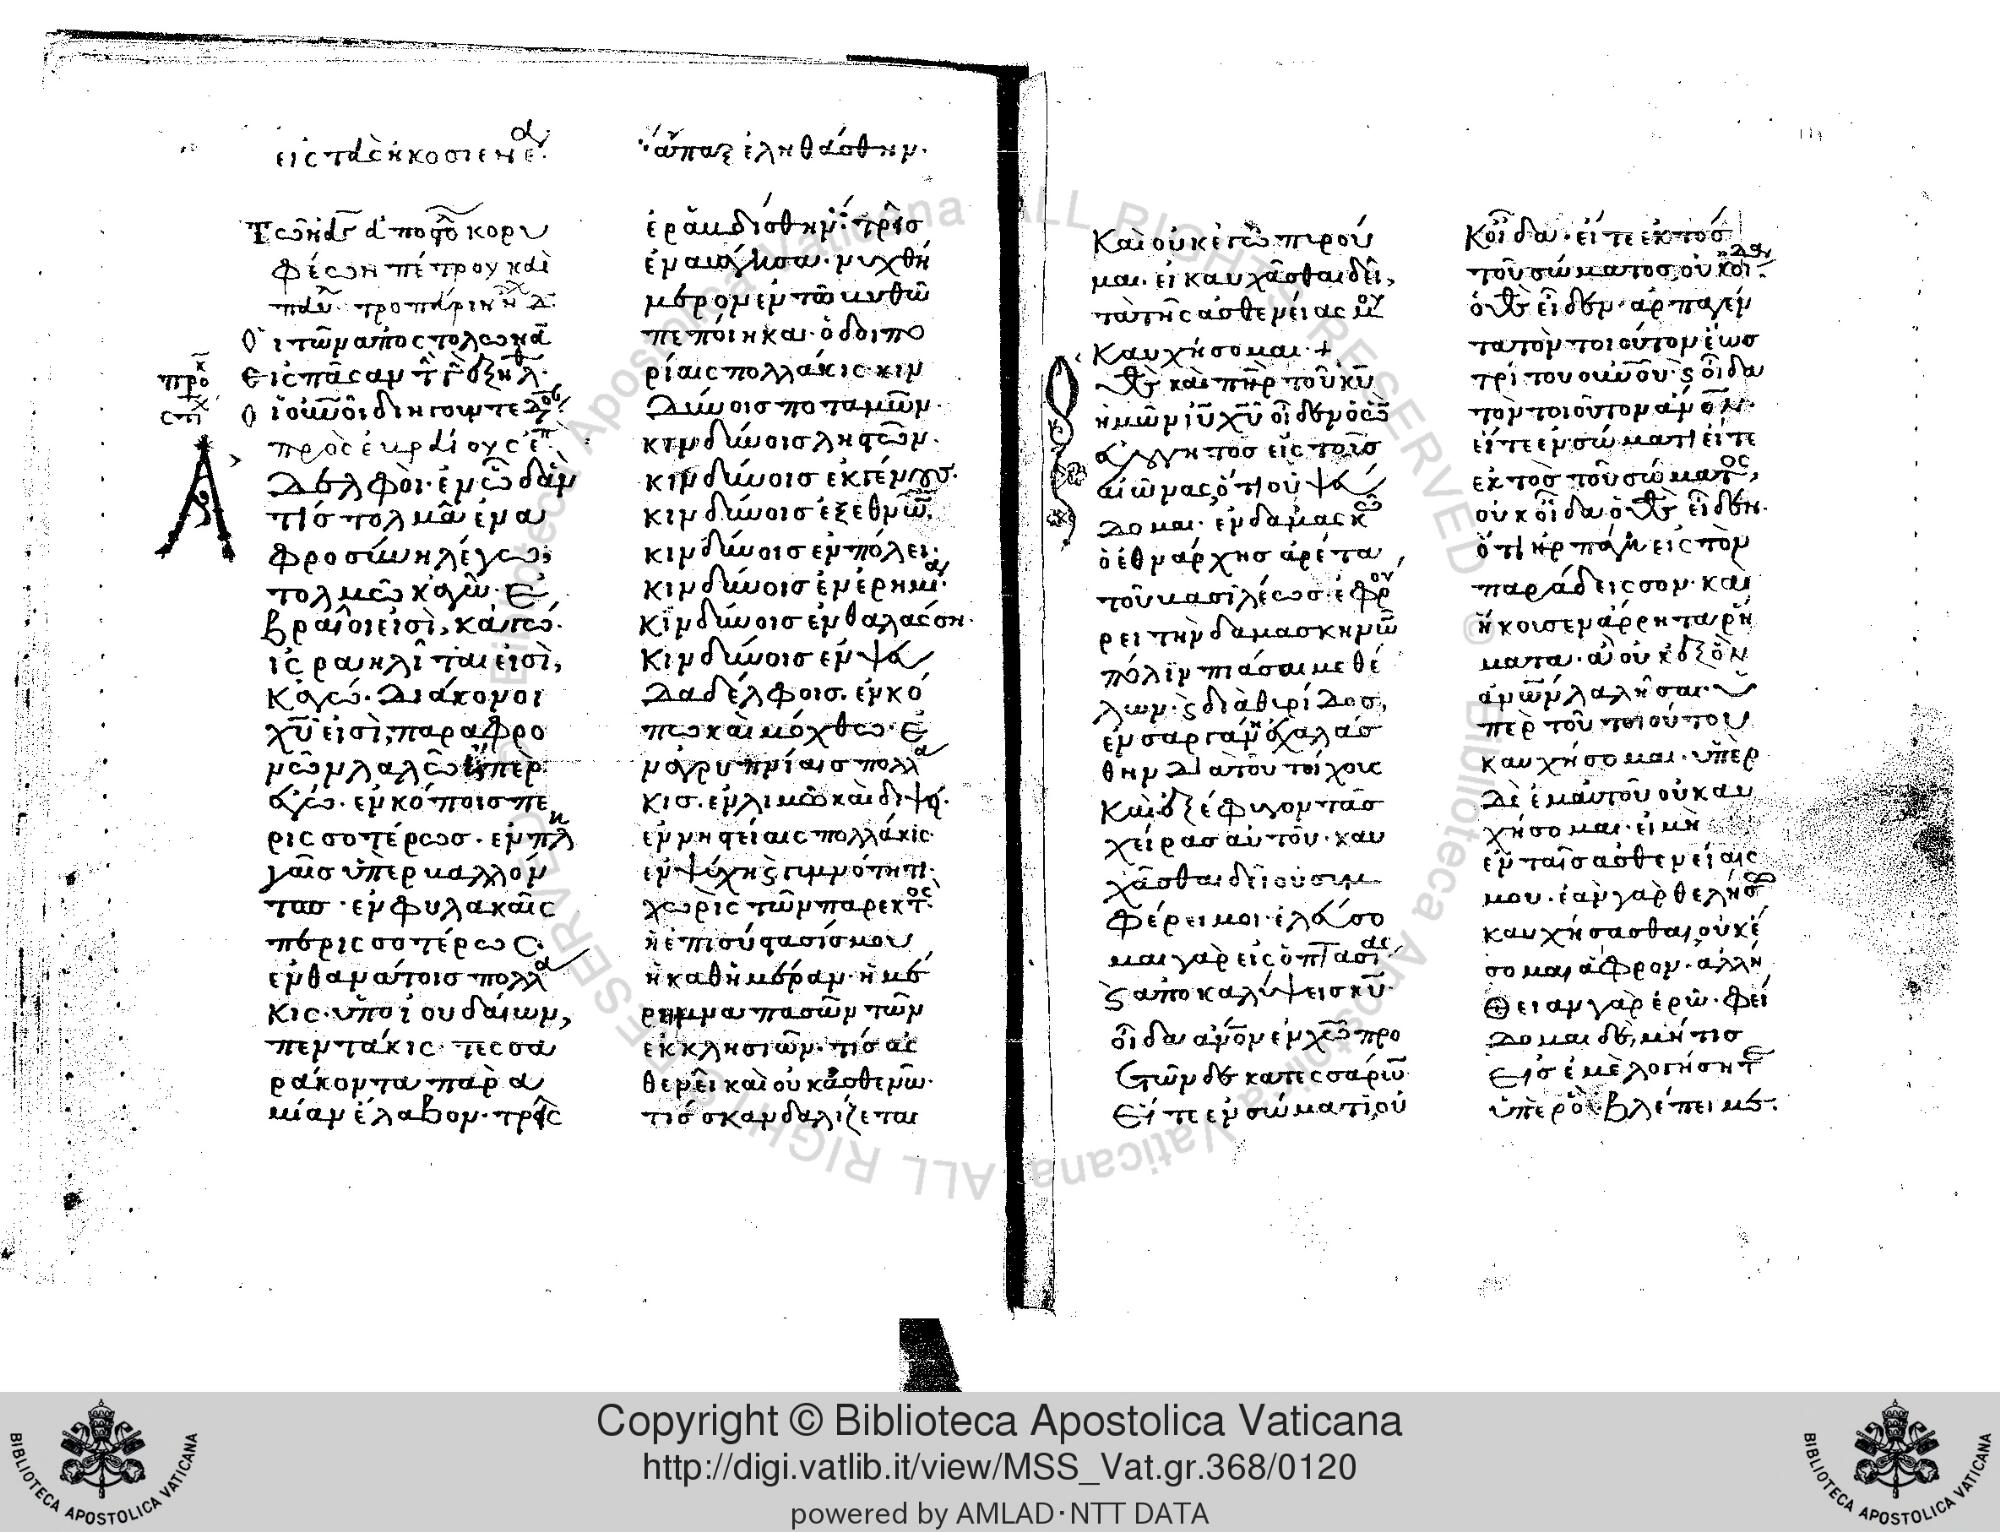 εἰς τὰς εἴκοσι ἐννέα
Τῶν ἁγ ἀποστό κορυ
φέων πέτρου καὶ
παύ
Οἱ τῶν ἀποστόλων
Εἰς πᾶσαν τ γ ἐξηλ
Οἱ οὐνοὶ διηγοῦντε
προκ
στί
πρὸς κορινθίους ἐπ
Αδελφοὶ· ἐν ὧ δἄν
τίς τολμᾶ ἐν α
φροσύνη λέγω,
τολμῶ κἀγώ· Ε
βραῖοι εἰσὶ, κἀγώ·
ἰσραηλῖται εἰσὶ,
κἀγώ· Διάκονοι
χῦ εἰσὶ, παραφρο
νῶν λαλῶ ὑπὲρ
ἐγώ· ἐν κόποις πε
ρισσοτέρως· ἐν πλη
γαῖς ὑπερβαλλόν
τως· ἐν φυλακαῖς
περισσοτέρως·
ἐν θανάτοις πολλά
κις· ὑπὸ ἰουδαίων,
πεντάκις τεσσα
ράκοντα παρὰ
μίαν ἔλαβον· τρὶς
ἅπαξ ἐλιθάσθην·
ἐραβδίσθην· τρὶς
ἐναυάγησα· νυχθή
μερον ἐν τῶ βυθῶ
πεποίηκα· ὁδοιπο
ρίαις πολλάκις· κιν
δύνοις ποταμῶν·
κινδύνοις ληστῶν·
κινδύνοις ἐκ γένους·
κινδύνοις ἐξ ἐθνῶν·
κινδύνοις ἐν πόλει·
κινδύνοις ἐν ἐρημία·
κινδύνοις ἐν θαλάσση·
κινδύνοις ἐν ψευ
δαδέλφοις· ἐν κό
πω καὶ μόχθω· ἐ
ν ἀγρυπνίαις πολλά
κις· ἐν λιμῶ καὶ δίψη·
ἐν νηστείαις πολλάκις·
ἐν ψύχη ϗ γυμνότητι·
χωρὶς τῶν παρεκτός·
ἡ ἐπισύστασίς μου
ἡ καθ' ἡμέραν· ἡ μέ
ριμνα πασῶν τῶν
ἐκκλησιῶν· τίς ἀσ
θενεῖ καὶ οὐκ ἀσθενῶ·
τίς σκανδαλίζεται
Καὶ οὐκ ἐγὼ πυροῦ
μαι· εἰ καυχᾶσθαι δεῖ,
τὰ τῆς ἀσθενείας μου
καυχήσομαι +
Ὁ θς καὶ πηρ τοῦ κυ
ἡμῶν ιυ χυ οἶδεν ὁ ὢν
εὐλογητὸς εἰς τοὺς
αἰῶνας, ὅτι οὐ ψεύ
δομαι· ἐν δαμασκῶ
ὁ ἐθνάρχης ἀρέτα
τοῦ βασιλέως ἐφρού
ρει τὴν δαμασκηνῶν
πόλιν πιάσαι με θέ
λων· ϗ διὰ θυρίδος,
ἐν σαργάνη ἐχαλάσ
θην διὰ τοῦ τοίχους
καὶ ἐξέφυγον τὰς
χεῖρας αὐτοῦ· καυ
χᾶσθαι δεῖ οὐ συμ
φέρει μοι· ἐλεύσο
μαι γὰρ εἰς ὀπτασίας
ϗ ἀποκαλύψεις κυ·
οἶδα ἀνον ἐν χω προ
ἐτῶν δεκατεσσάρων
Εἴτε ἐν σώματι, οὐ
κοῖδα· εἴτε ἐκτὸς
τοῦ σώματος, οὐκ οἶδα
ὁ θς εἶδεν· ἁρπαγέν
τα τὸν τοιοῦτον ἕως
τρίτου οὐνοῦ· ϗ οἶδα
τὸν τοιοῦτον ἀνον·
εἴτε ἐν σώματι εἴτε
ἐκτὸς τοῦ σώματος,
οὐκ οἶδα ὁ θς εἶδεν·
ὅτι ἡρπάγη εἰς τὸν
παράδεισον· καὶ
ἤκουσεν ἄρρητα ῥή
ματα· ἃ οὐκ ἐξὸν
ἀνων λαλῆσαι· ὑ
πὲρ τοῦ τοιούτου
καυχήσομαι· ὑπὲρ
δὲ ἐμαυτοῦ οὐ καυ
χήσομαι· εἰ μὴ
ἐν ταῖς ἀσθενείαις
μου· ἐὰν γὰρ θελήσω
καυχήσασθαι, οὐκ ἔ
σομαι ἄφρον· ἀλλή
θειαν γὰρ ἐρῶ· φεί
δομαι δὲ, μή τις
εἰς ἐμὲ λογήσητ
ὑπὲρ ὃ βλέπει με·
Copyright © Biblioteca Apostolica Vaticana
http://digi.vatlib.it/view/MSS_Vat.gr.368/0120
powered by AMLAD·NTT DATA
BIBLIOTECA APOSTOLICA VATICANA
BIBLIOTECA APOSTOLICA VATICANA
Biblioteca Apostolica Vaticana ALL RIGHTS RESERVED ©